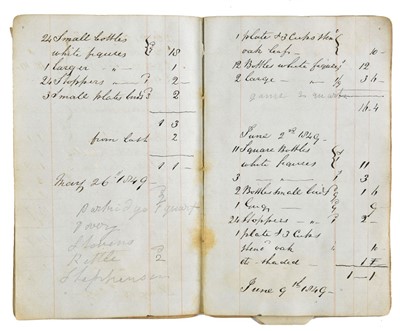 24 Small bottles
white figures 18
1 larger " - 1 -
24 Stoppers - 2 -
3 Small plates birds 2
1 3
from last 2
1 1 -
May 26th 1849 -
Stevens
Kettle 2
Stephenson
1 plate & 3 Cups
oak leaf - 10 -
12 Bottles white figures 12
2 large " - 3 6 -
16.4
June 2nd 1849 -
11 Square Bottles
white figures 11
3 " - " 3
2 Bottles small birds 1 6
1 Gug 9
24 Stoppers - " 2 -
1 plate & 3 Cups
oak 10
shaded - 1
1 - 1
June 9th 1849 -